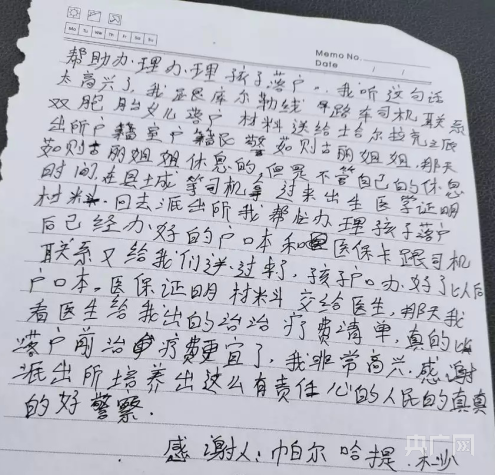 Mo Tu We Th Fr Sa Su
Memo No.
Date / /
帮助办理办理孩子落户。我听这句话
太高兴了,我正良库尔勒线路车司机联系
双胞胎女儿落户材料送给士合尔拉克派
出所户籍室户籍民警茹则古丽姐姐.那天
茹则古丽姐姐休息的,但是不管自己的休息
时间,在县土城等司机拿过来出生医学证明
材料.回去派出所我帮忙办理孩子落户
后已经办好的户口本和医保卡跟司机
联系又给我们送过来了,孩子户口办好了以后
户口本.医保证明材料交给医生,那天我
看医生给我出的治治疗费清单,真的比
落户前治疗费便宜了,我非常高兴.感谢
派出所培养出这么有责任心的人民的真真
的好警察.
感谢人:帕尔哈提.
央广网